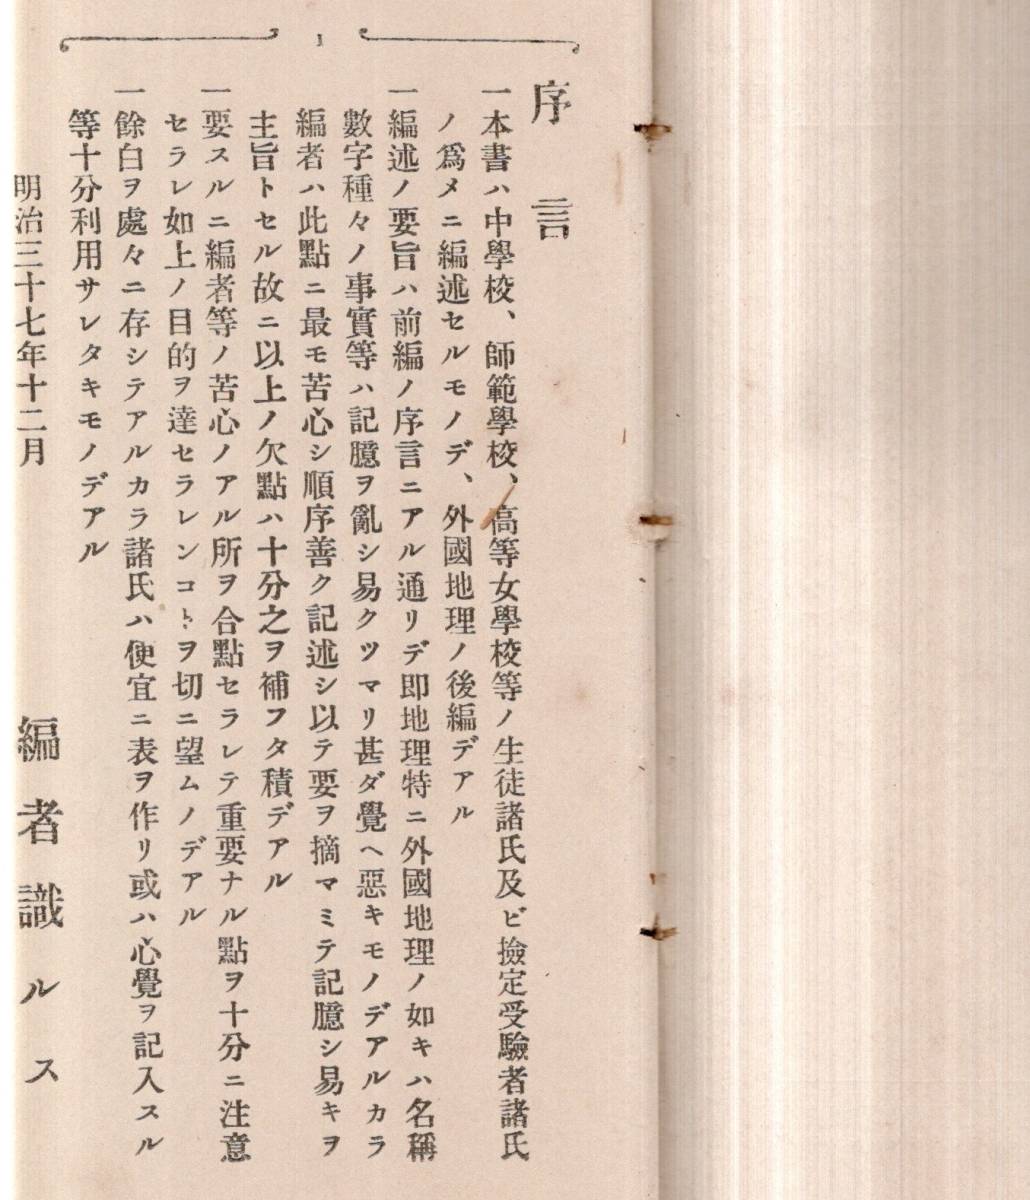 1
序言
一本書ハ中學校、師範學校、高等女學校等ノ生徒諸氏及ビ撿定受驗者諸氏
ノ爲メニ編述セルモノデ、外國地理ノ後編デアル
一編述ノ要旨ハ前編ノ序言ニアル通リデ即地理特ニ外國地理ノ如キハ名稱
數字種々ノ事實等ハ記臆ヲ亂シ易クツマリ甚ダ覺ヘ惡キモノデアルカラ
編者ハ此點ニ最モ苦心シ順序善ク記述シ以テ要ヲ摘マミテ記臆シ易キヲ
主旨トセル故ニ以上ノ欠點ハ十分之ヲ補フタ積デアル
一要スルニ編者等ノ苦心ノアル所ヲ合點セラレテ重要ナル點ヲ十分ニ注意
セラレ如上ノ目的ヲ達セラレンコトヲ切ニ望ムノデアル
一餘白ヲ處々ニ存シテアルカラ諸氏ハ便宜ニ表ヲ作リ或ハ心覺ヲ記入スル
等十分利用サレタキモノデアル
明治三十七年十二月
編者識ルス